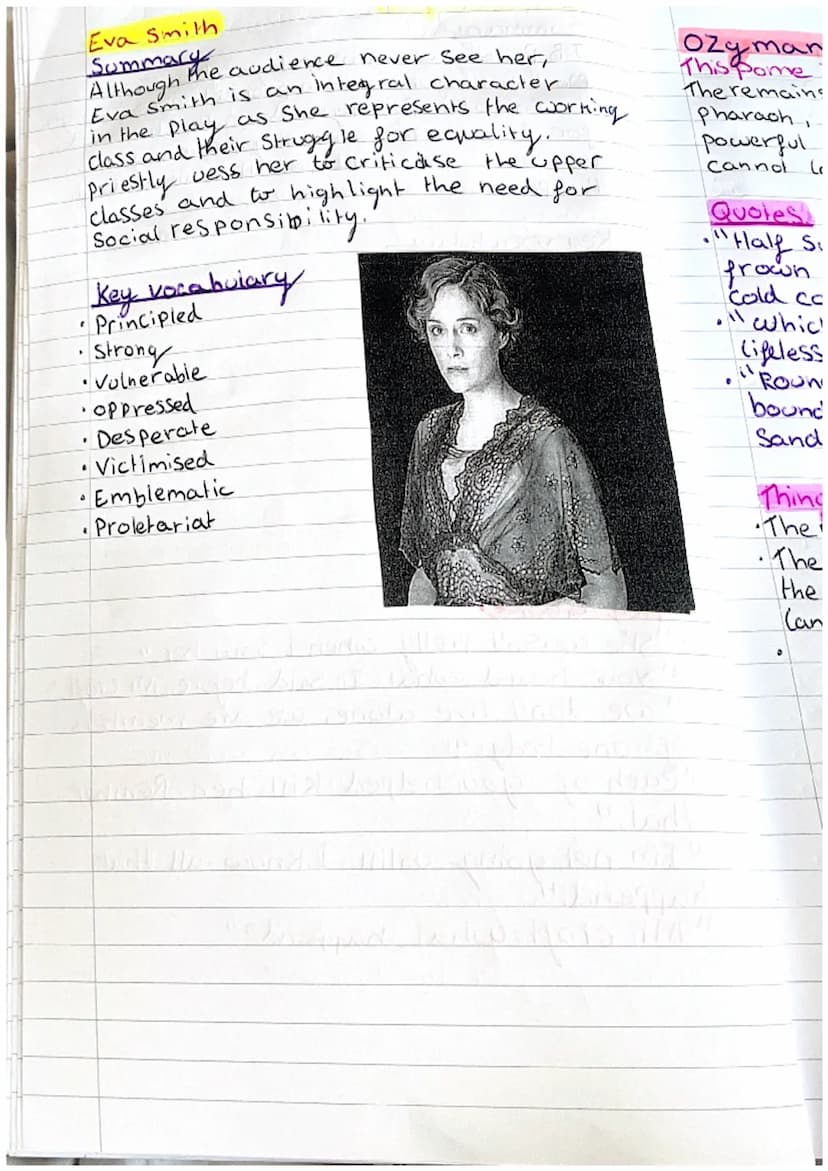 Eva Smith
Summary
Although the audience never see her,
Eva Smith is an integral character
in the play as she represents the working
class and their struggle for equality.
Priestly uess her to criticise the upper
classes and to highlight the need for
Social responsibility.
Key vocabulary
• Principled
• Strong
• Vulnerable
• Oppressed
• Desperate
• Victimised
• Emblematic
• Proletariat
Ozyman
This pome
The remains
pharaoh,
powerful
cannot
Quotes
• "Half
frown
cold
• "Whic
lifeless
• "Roun
bound
Sand
Thing
• The
• The
the